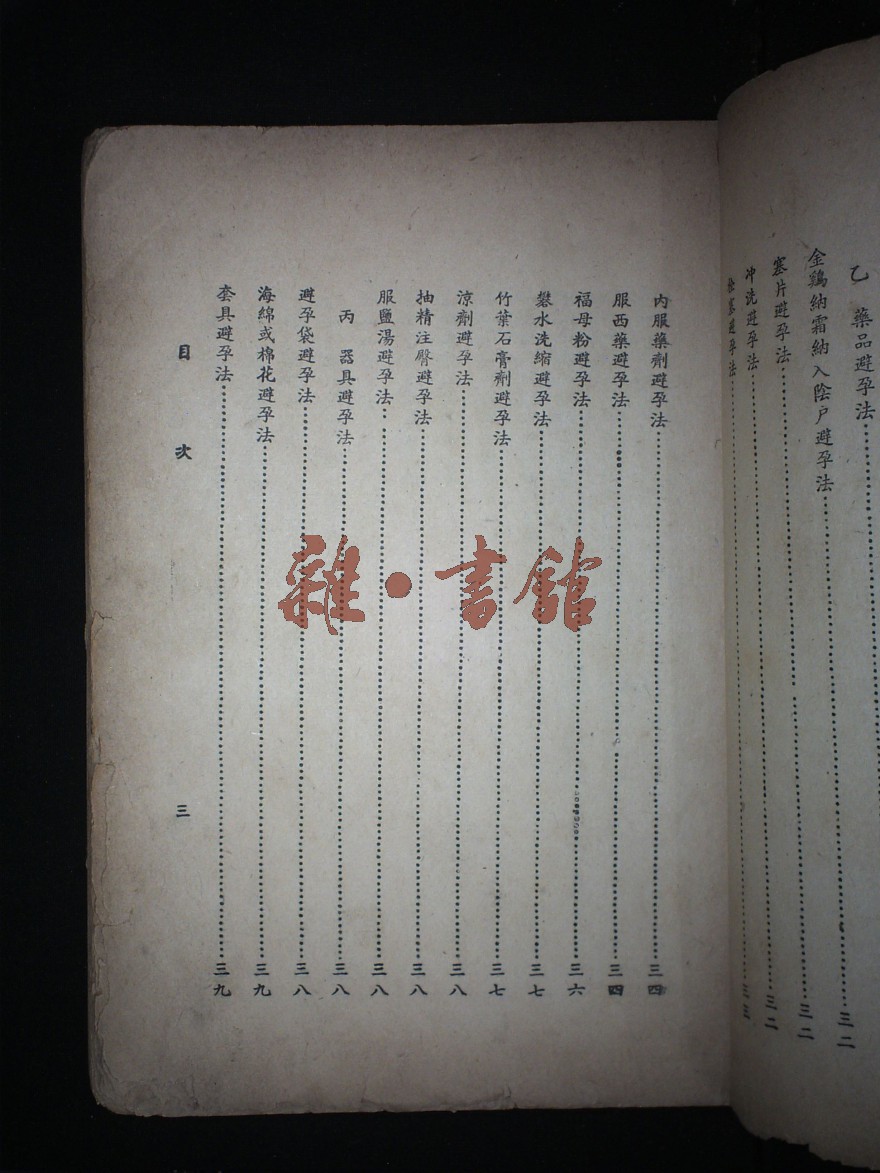 乙　藥品避孕法……三二
金鷄納霜納入陰户避孕法……三二
塞片避孕法……三二
冲洗避孕法……三三
栓塞避孕法……三三
内服藥劑避孕法……三四
服西藥避孕法……三四
福母粉避孕法……三六
礬水洗縮避孕法……三七
竹葉石膏劑避孕法……三七
涼劑避孕法……三八
抽精注臀避孕法……三八
服鹽湯避孕法……三八
丙　器具避孕法……三八
避孕袋避孕法……三八
海綿或棉花避孕法……三九
套具避孕法……三九
目次
三
雜·書館